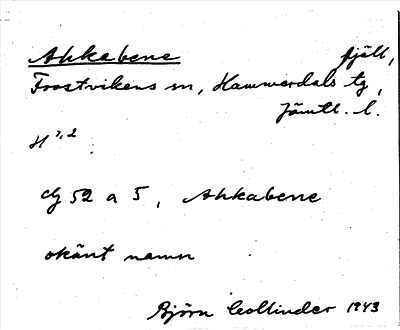 Ahkabene fjäll,
Frostvikens sn, Hammerdals tg,
Jämtl. l.
H 7,2
cg 52 a 5, Ahkabene
okänt namn
Björn Collinder 1943